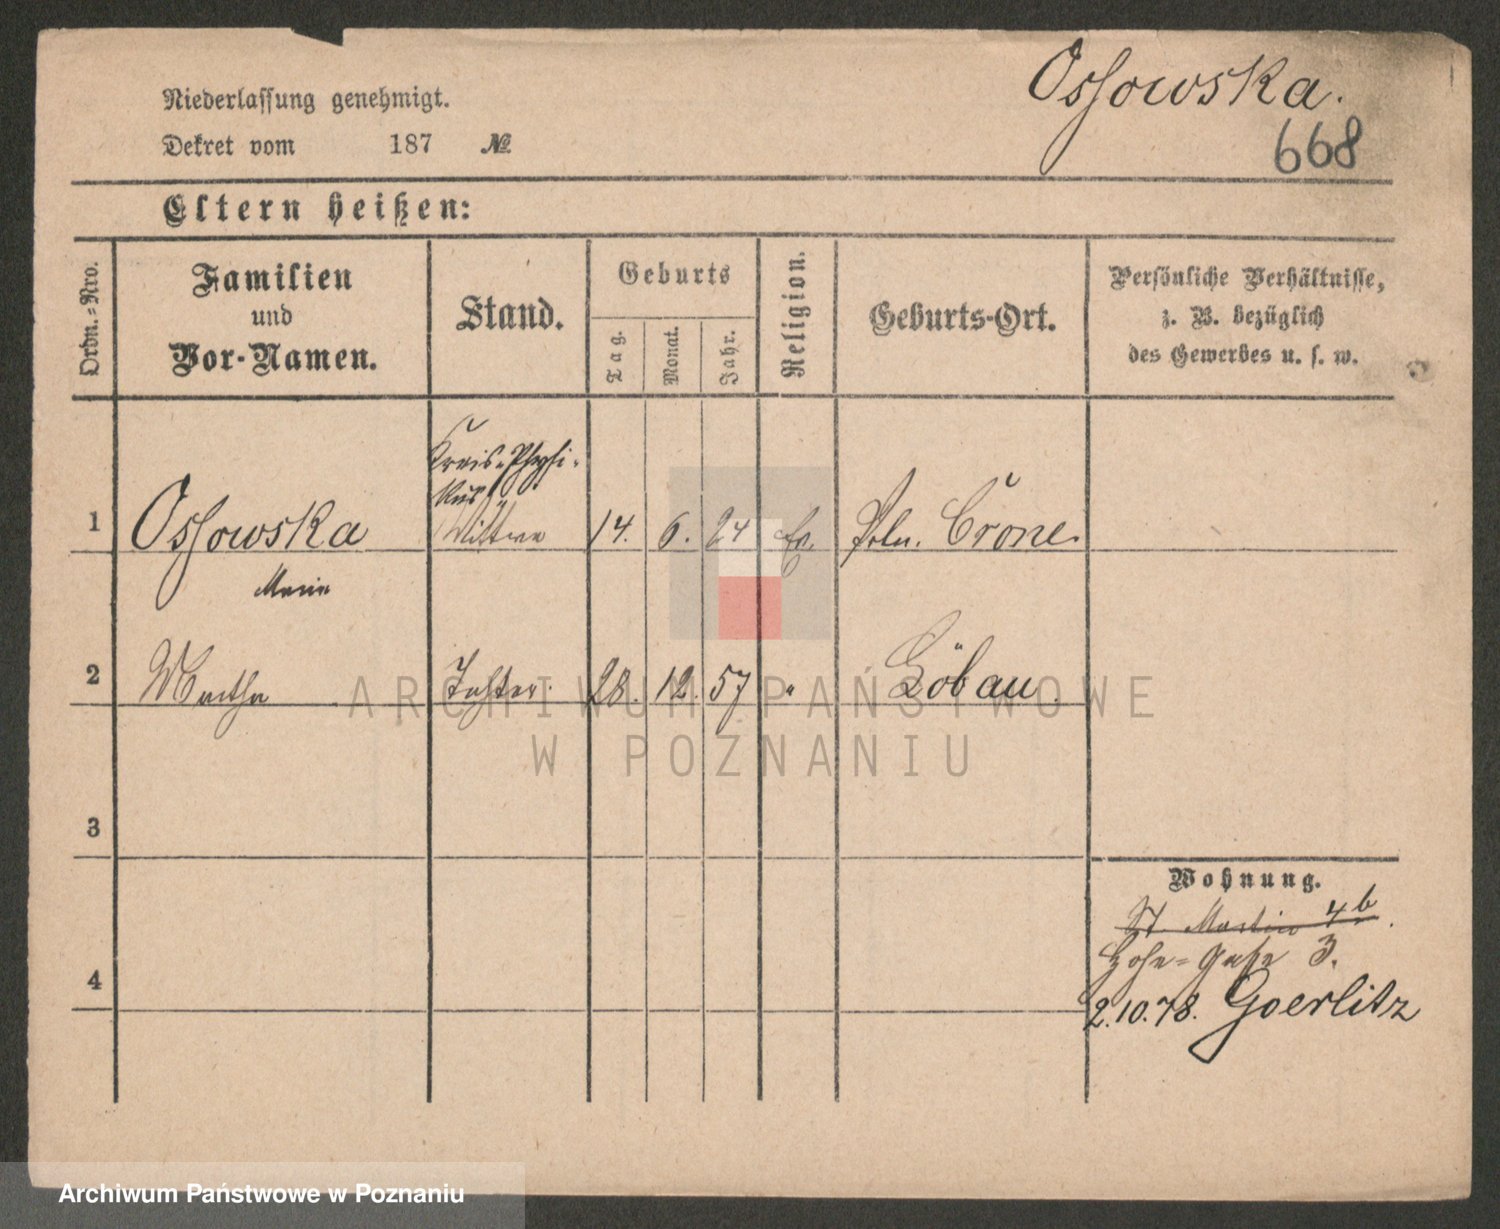 Ossowska.
668
Niederlassung genehmigt.
Dekret vom 187 №
Eltern heißen:
Ordn.-Nro.
Familien
und
Vor-Namen.
Stand.
Geburts
Tag.
Monat.
Jahr.
Religion.
Geburts-Ort.
Persönliche Verhältnisse,
z. B. bezüglich
des Gewerbes u. s. w.
Kreis-Physi-
kus
1 Ossowska Wittwe 14. 6. 24 Ev. Poln. Crone.
Marie
2 Martha Tochter. 28. 12. 57 " Löbau
3
Wohnung.
St Martin 4b.
Hohe-Gasse 3.
4
2.10.78. Goerlitz
ARCHIWUM PAŃSTWOWE
W POZNANIU
Archiwum Państwowe w Poznaniu